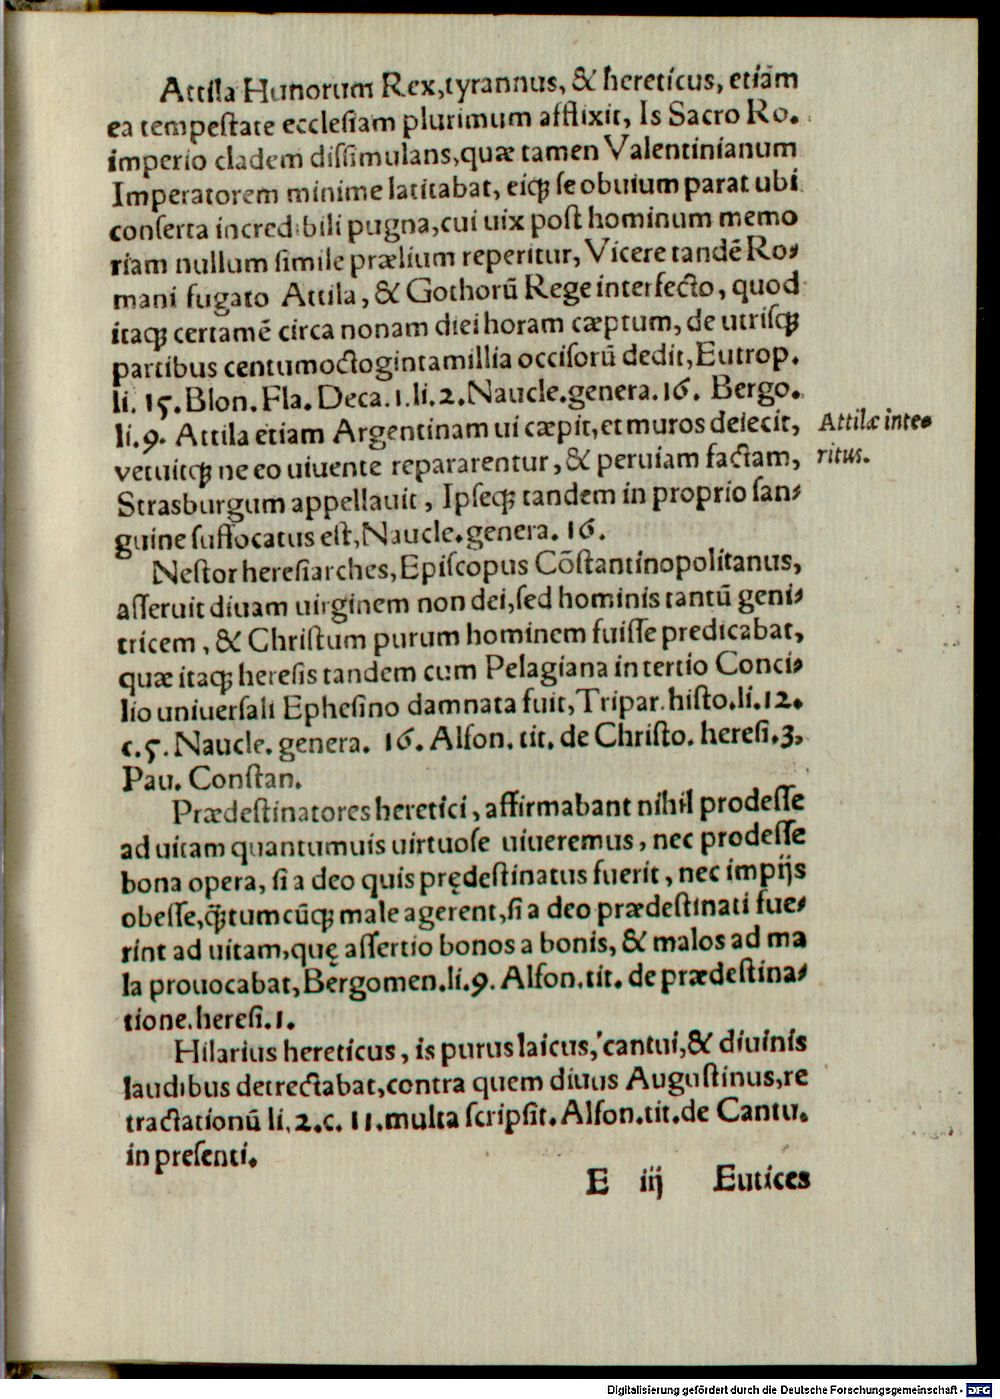 Attila Hunorum Rex,tyrannus, & hereticus, etiam
ea tempeſtate eccleſiam plurimum afflixit, Is Sacro Ro.
imperio cladem diſſimulans,quæ tamen Valentinianum
Imperatorem minime latitabat, eiqꝫ ſe obuium parat ubi
conſerta incredibili pugna,cui uix poſt hominum memo
riam nullum ſimile prælium reperitur, Vicere tandē Ro⸗
mani fugato Attila, & Gothorū Rege interfecto, quod
itaqꝫ certamē circa nonam diei horam cæptum, de utriſqꝫ
partibus centumoctogintamillia occiſorū dedit, Eutrop.
li. 15. Blon. Fla. Deca. 1. li. 2. Naucle. genera. 16. Bergo.
li. 9. Attila etiam Argentinam ui cæpit, et muros deiecit,
vetuitqꝫ ne eo uiuente repararentur, & peruiam factam,
Strasburgum appellauit, Ipſeqꝫ tandem in proprio ſan⸗
guine ſuffocatus eſt, Naucle. genera. 16.
Attilæ inte⸗
ritus.
Neſtor hereſiarches, Epiſcopus Cōſtantinopolitanus,
aſſeruit diuam uirginem non dei, ſed hominis tantū geni⸗
tricem, & Chriſtum purum hominem fuiſſe predicabat,
quæ itaqꝫ hereſis tandem cum Pelagiana in tertio Conci⸗
lio uniuerſali Epheſino damnata fuit, Tripar. hiſto. li. 12.
c. 5. Naucle. genera. 16. Alfon. tit. de Chriſto. hereſi. 3.
Pau. Conſtan.
Prædeſtinatores heretici, affirmabant nihil prodeſſe
ad uitam quantumuis uirtuoſe uiueremus, nec prodeſſe
bona opera, ſi a deo quis prędeſtinatus fuerit, nec impijs
obeſſe, q̄tumcūqꝫ male agerent, ſi a deo prædeſtinati fue⸗
rint ad uitam, quę aſſertio bonos a bonis, & malos ad ma
la prouocabat, Bergomen. li. 9. Alfon. tit. de prædeſtina⸗
tione. hereſi. 1.
Hilarius hereticus, is purus laicus, cantui, & diuinis
laudibus detrectabat, contra quem diuus Auguſtinus, re
tractationū li. 2. c. 11. multa ſcripſit. Alfon. tit. de Cantu.
in preſenti.
E iij Eutices
Digitalisierung gefördert durch die Deutsche Forschungsgemeinschaft - DFG